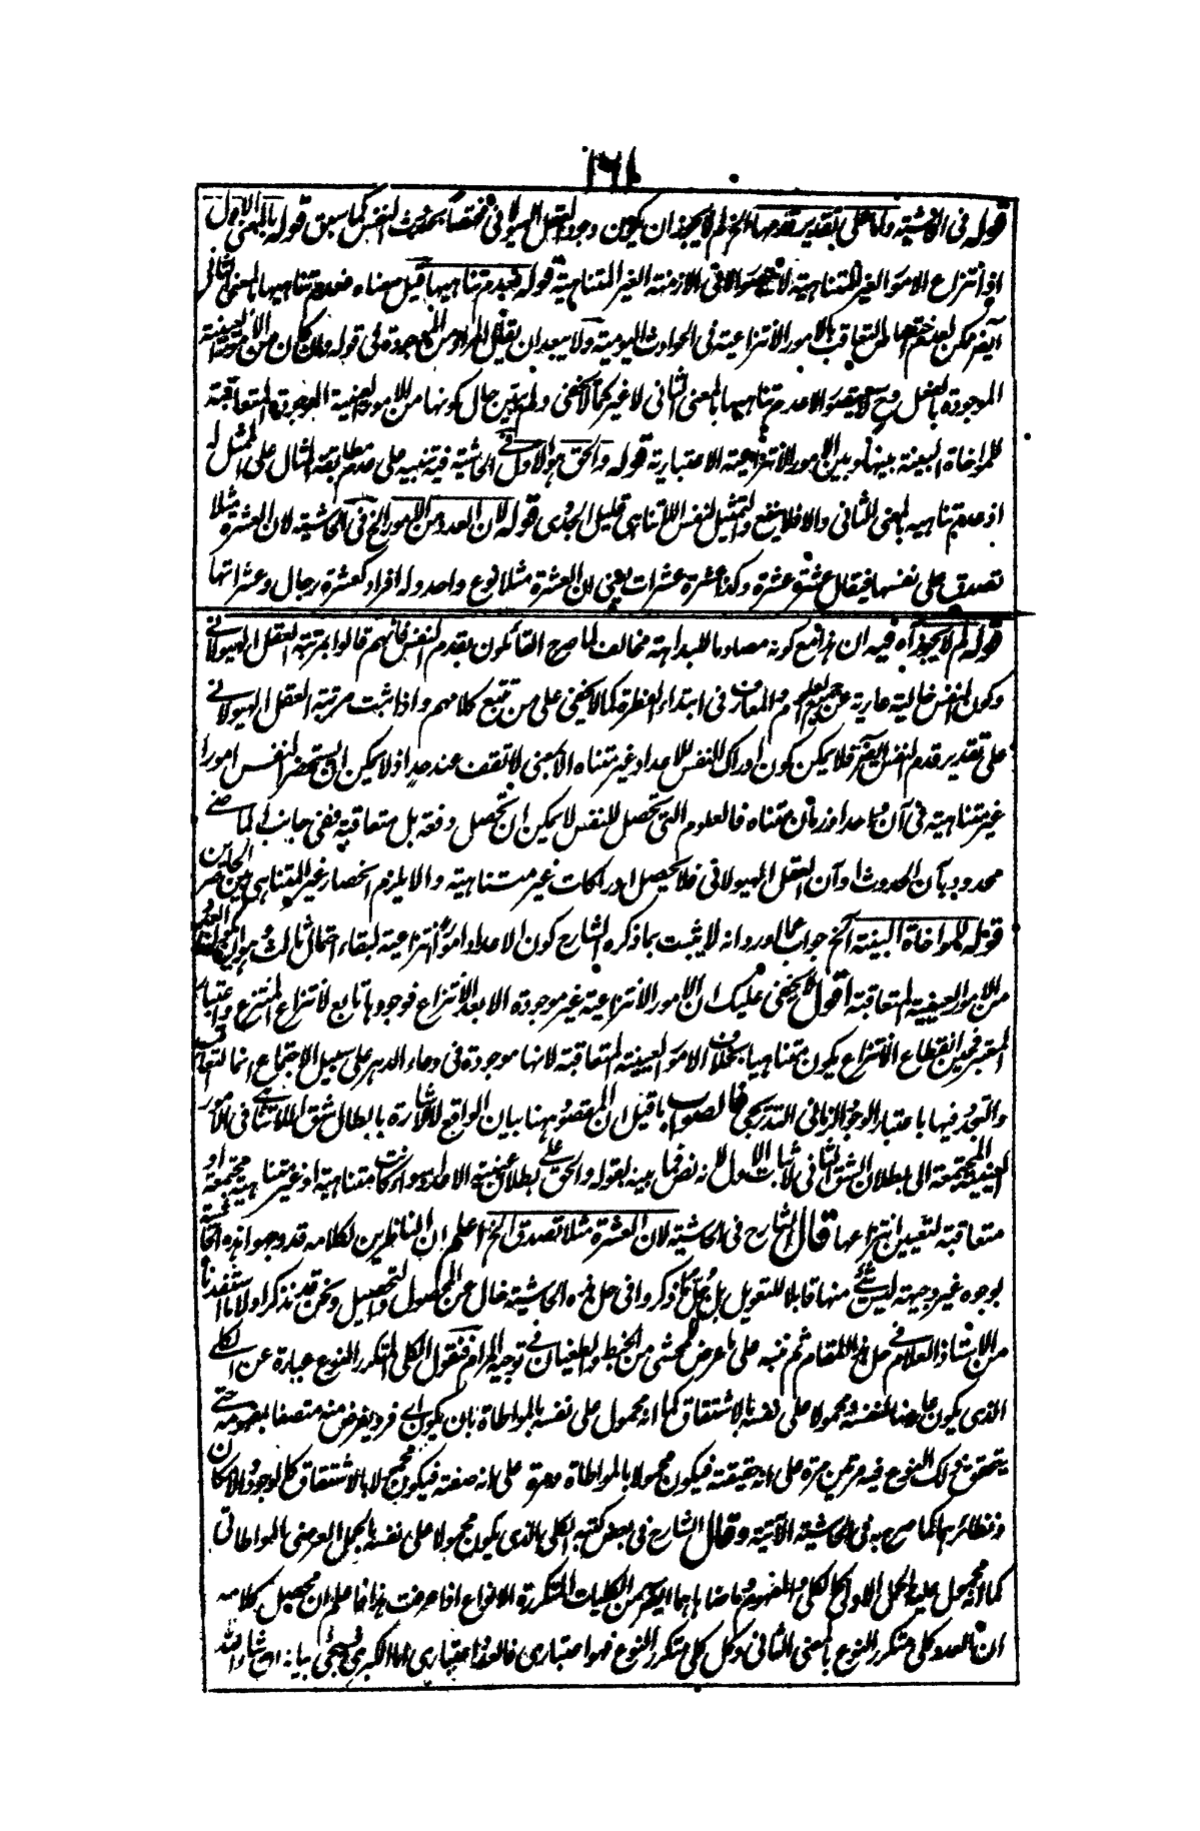 ١٦١
قوله في الحاشية واما على تقدير قدمها الخ لم لا يجوز ان يكون وجود العقل الهيولاني مختصاً بحدوث النفس كما سبق قوله بالمعنى الاول
اذ انتزاع الامور الغير المتناهية لا يتصور الا في الازمنة الغير المتناهية قوله فعدم تناهيها قيل معناه فعدم تناهيها بالمعنى الثاني
ايضر ممكن لعدم بالامور الانتزاعية في الحوادث اليومية ولا يبعد ان يقال المراد من الموجودة في قوله وان كان من الامور العينية
الموجودة بالفعل وح لا يتصور الا عدم تناهيها بالمعنى الثاني لا غير كما لا يخفى ولم يتبين حال كونها من الامور العينية الموجودة المتعاقبة
للمواخاة البينة بينها وبين الامور الانتزاعية الاعتبارية قوله والحق هو الاول في الحاشية فيه تنبيه على عدم مطابقة المثال على الممثل له
اذ عدم تناهيه بالمعنى الثاني والا فلا ينفع والتمثيل لنفس اللاتناهي قليل الجدوى قوله لان العدد من الامور الخ في الحاشية لان العشرة مثلا
تصدق على نفسها فيقال عشرة عشرة وكذا عشرة عشرات يعني ان العشرة مثلا نوع واحد وله افراد كعشرة رجال وعشراتها
قوله لم لا يجوز آه فيه ان هذا مع كونه مصادما للبداهة مخالف لما صرح القائلون بقدم النفس فانهم قالوا بمرتبة العقل الهيولاني
وكون النفس خالية عارية عن جميع العلوم والمعارف في ابتداء الفطرة كما لا يخفى على من تتبع كلامهم واذا ثبت مرتبة العقل الهيولاني
على تقدير قدم النفس ايضر فلا يمكن كون ادراك النفس للاعداد غير متناه الا بمعنى لا تقف عند حد اذ لا يمكن ان يستحضر النفس امورا
غير متناهية في آن واحد او زمان متناه فالعلوم التي تحصل للنفس لا يمكن ان تحصل دفعة بل متعاقبة ففي جانب الماضي
محدود بآن الحدوث او آن العقل الهيولاني فلا يحصل ادراكات غير متناهية والا يلزم انحصار غير المتناهي بين حاصرين
قوله للمواخاة البينة الخ جواب عما اورد انه لا يثبت بما ذكره الشارح كون الاعداد امورا انتزاعية لبقاء احتمال ثالث هو ان يكون العدد
من الامور العينية المتعاقبة اقول لا يخفى عليك ان الامور الانتزاعية غير موجودة الا بعد الانتزاع فوجودها تابع لانتزاع المنتزع واعتبار
المعتبر فحين انقطاع الانتزاع يكون متناهيا بخلاف الامور العينية المتعاقبة لانها موجودة في وعاء الدهر على سبيل الاجتماع انما التعاقب
والتجدد فيها باعتبار الوجود الزماني التدريجي فالصواب ما قيل ان المقصود ههنا بيان الواقع لا الاشارة بابطال شق اللاتناهي في الامور
العينية المجتمعة الى بطلان الشق الثاني لاثبات الاول لانه نص فيما بينه بقوله والحق على بطلان عينية الاعداد سواء كانت متناهية او غير متناهية مجتمعة او
متعاقبة لتعيين انتزاعها قال الشارح في الحاشية لان العشرة مثلا تصدق الخ اعلم ان الناظرين لكلامه قد وجهوا هذه الحاشية
بوجوه غير وجيهة ليس شئ منها قابلا للتعويل بل جل ما ذكروا في حل هذه الحاشية خال عن المحصول والتحصيل ونحن قد نذكر اولا ما استفدنا
من الاستاذ العلام في حل هذا المقام ثم ننبه على ما عرض للمحشي من الخبط والطغيان في توجيه المرام فنقول الكلي المتكرر النوع عبارة عن الكلي
الذي يكون عارضا لنفسه ومحمولا على نفسه بالاشتقاق كما انه محمول على نفسه بالمواطاة بان يكون اي فرد يفرض منه متصفا بمفهومه حتى
يتحقق ذلك النوع فيه مرتين مرة على انه حقيقته فيكون محمولا بالمواطاة ومرة على انه صفته فيكون محمولا بالاشتقاق كالوجود والامكان
ونظائرهما كما صرح به في الحاشية الآتية وقال الشارح في بعض كتبه الكلي الذي يكون محمولا على نفسه بالحمل العرضي بالمواطاتي
كما انه محمول عليه بالحمل الاولي كالكلي والمفهوم وما ضاهاهما ايضر من الكليات المتكررة الانواع اذا عرفت هذا فاعلم ان محصل كلامه
ان العدد كلي متكرر النوع بالمعنى الثاني وكل كلي متكرر النوع فهو اعتباري فالعدد اعتباري اما الكبرى فسيجئ بيانه ان شاء الله